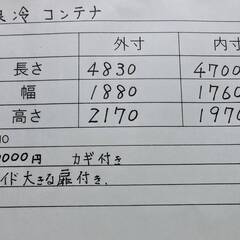 冷 コンテナ
外寸 内寸
長さ 4830 4700
幅 1880 1760
高さ 2170 1970
000円 カギ付き
イド大きな扉付き.